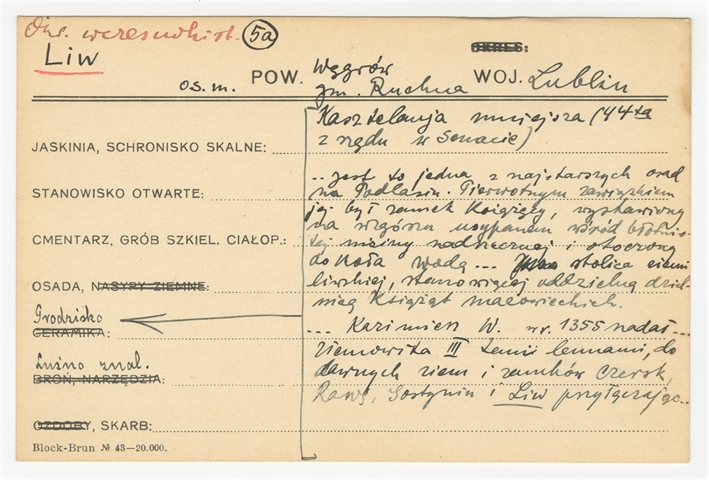 Okr. wczesnohist. 5a
OKRES:
Liw
os. m. POW. Węgrów WOJ. Lublin
gm. Ruchna
Kasztelanja mniejsza (44ta
z rzędu w Senacie)
JASKINIA, SCHRONISKO SKALNE:
... jest to jedna z najstarszych osad
STANOWISKO OTWARTE: na Podlasiu. Pierwotnym zawiązkiem
jej był zamek Książęcy, wystawiony
na wzgórzu usypanem wśród błotnis-
CMENTARZ, GRÓB SZKIEL. CIAŁOP.: tej niziny nadrzecznej i otoczony
do koła wodą ... stolica ziemi
OSADA, NASYPY ZIEMNE: liwskiej, stanowiącej oddzielną dziel-
nicę Książąt mazowieckich.
Grodzisko
CERAMIKA: ... Kazimierz W. w r. 1355 nadał ...
Ziemowita III temi lennami, do
Luźno znal.
BROŃ, NARZĘDZIA: dawnych ziem i zamków Czersk,
Rawę, Gostynin i Liw przyłączając..
OZDOBY, SKARB:
Block-Brun № 43—20.000.